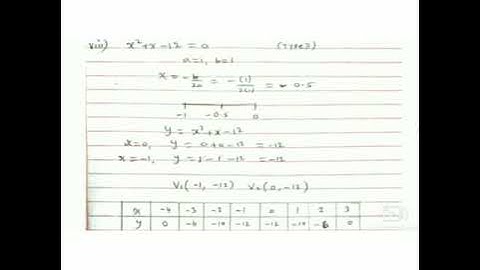 viii) x² + x - 12 = 0 (TYPE 3)
a=1, b=1
x = -b/2a = -(1)/2(1) = -0.5
-1 -0.5 0
y = x² + x - 12
x=0, y = 0+0-12 = -12
x=-1, y = 1-1-12 = -12
V₁(-1, -12) V₂(0, -12)
x -4 -3 -2 -1 0 1 2 3
y 0 -6 -10 -12 -12 -10 -6 0